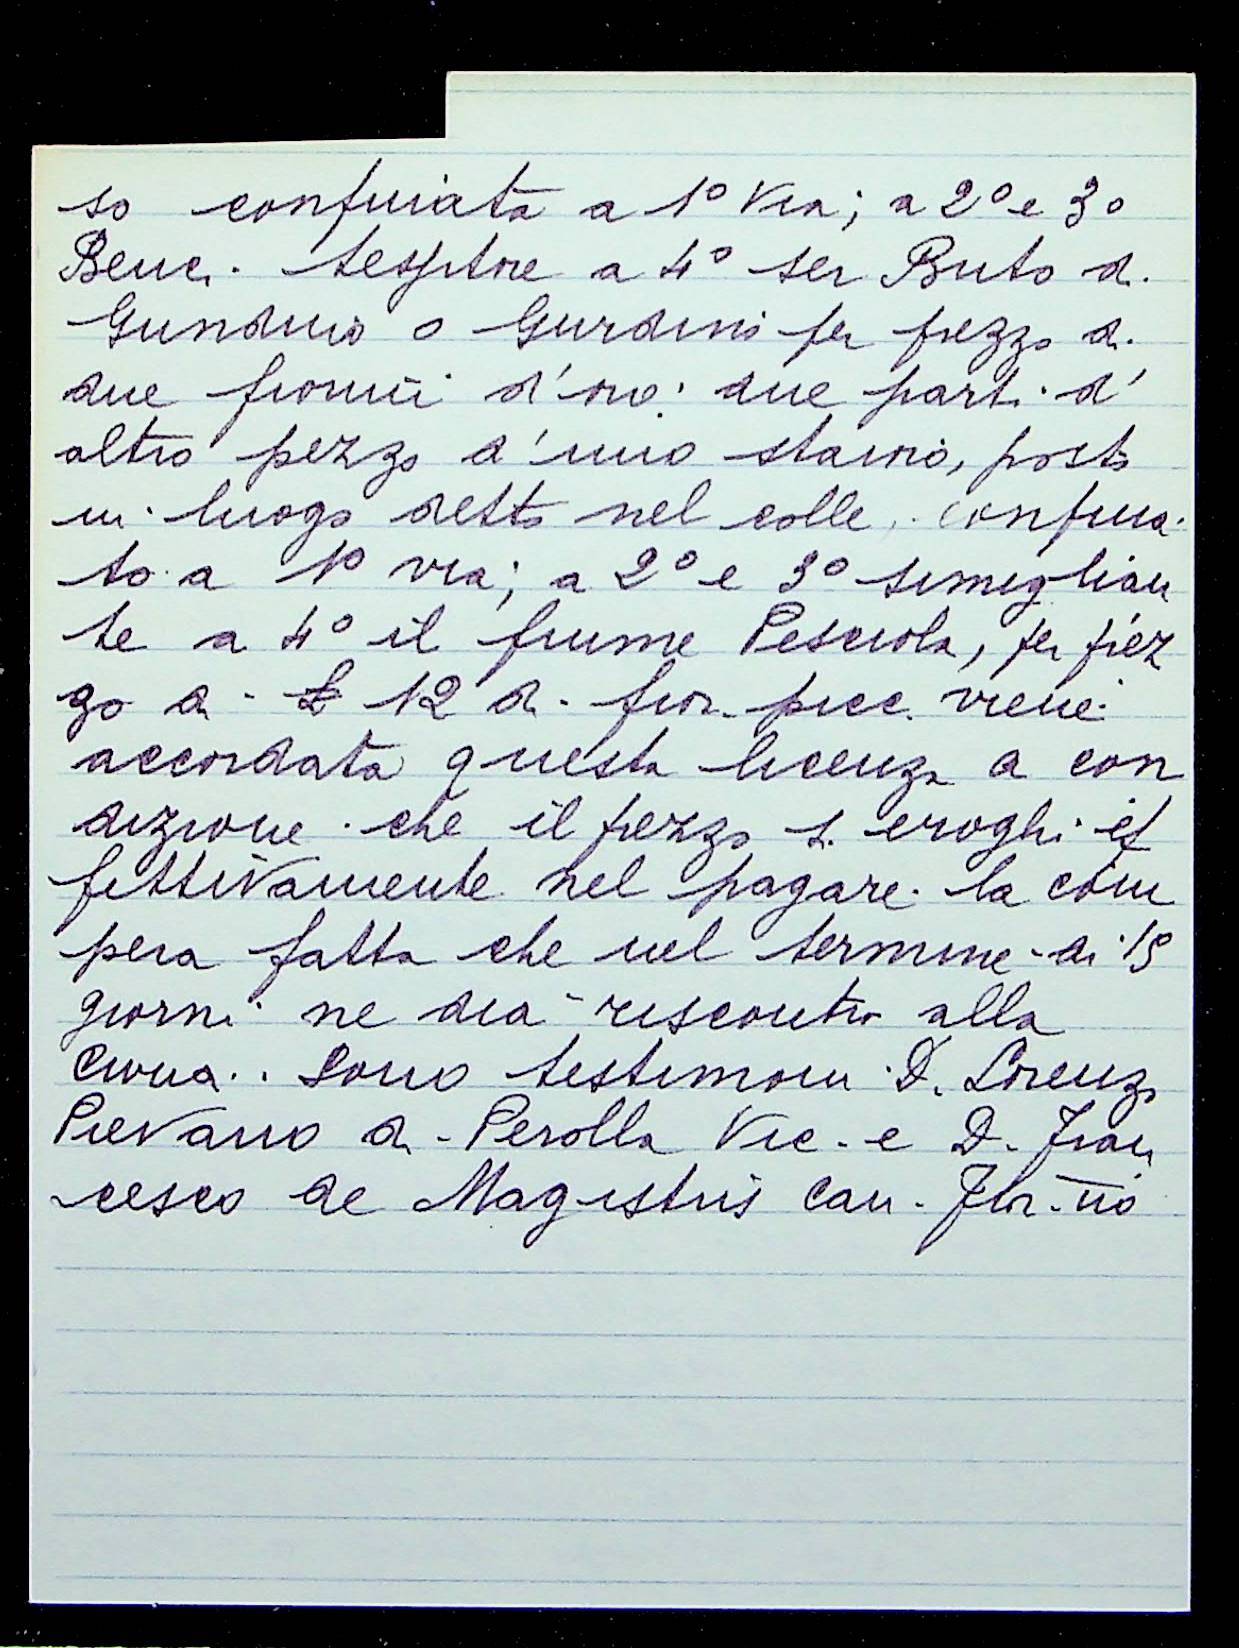 so confinata a 1° Via; a 2° e 3°
Benci. a 4° ser Buto di
Gunduio o Gurdino per prezzo di
due fiorini d'oro; due parti d'
altro pezzo d'uno staioro, posto
in luogo detto nel colle, confina-
to a 1° via; a 2° e 3° simiglian
te a 4° il fiume Pesciola, per prez
zo di £ 12 di fior. picc. viene
accordata questa licenza a con
dizione che il prezzo si eroghi ef
fettivamente nel pagare la com
pera fatta che nel termine di 15
giorni ne dia riscontro alla
Curia. Sono testimoni D. Lorenzo
Pievano di Perolla Vic. e D. Fran
cesco de Magistris Can. Fior.no